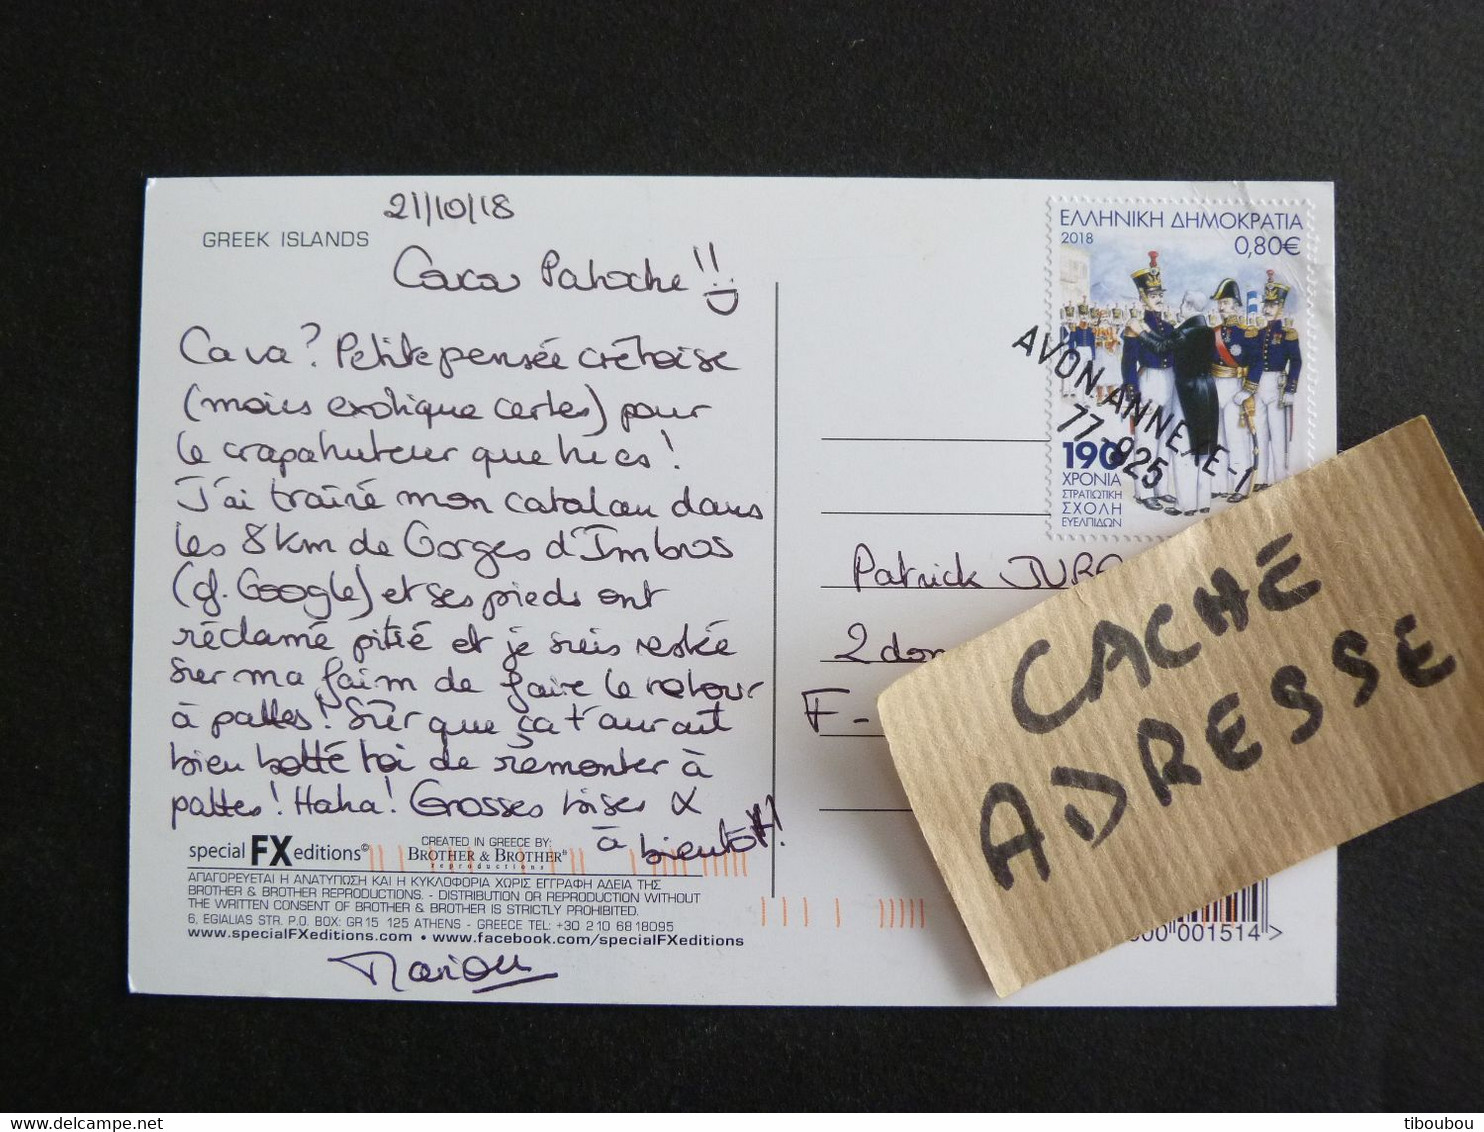 21/10/18
GREEK ISLANDS
Patoche !!
Ca va? Petite pensée crétoise
(moins exotique certes) pour
le crapahuteur que tu es !
J'ai traîné mon catalan dans
les 8 km de Gorges d'Imbros
(cf. Google) et ses pieds ont
réclamé pitié et je suis restée
sur ma faim de faire le retour
à pattes ! Sûr que ça t'aurait
bien botté toi de remonter à
pattes ! Haha ! Grosses bises &
à bientôt !
special FX editions©
CREATED IN GREECE BY:
BROTHER & BROTHER®
reproductions
ΑΠΑΓΟΡΕΥΕΤΑΙ Η ΑΝΑΤΥΠΩΣΗ ΚΑΙ Η ΚΥΚΛΟΦΟΡΙΑ ΧΩΡΙΣ ΕΓΓΡΑΦΗ ΑΔΕΙΑ ΤΗΣ
BROTHER & BROTHER REPRODUCTIONS. - DISTRIBUTION OR REPRODUCTION WITHOUT
THE WRITTEN CONSENT OF BROTHER & BROTHER IS STRICTLY PROHIBITED.
6, EGIALIAS STR. P.O. BOX: GR15 125 ATHENS - GREECE TEL: +30 210 6818095
www.specialFXeditions.com • www.facebook.com/specialFXeditions
Marion
ΕΛΛΗΝΙΚΗ ΔΗΜΟΚΡΑΤΙΑ
2018 0,80€
AVON ANNEXE-1
77-925
190
ΧΡΟΝΙΑ
ΣΤΡΑΤΙΩΤΙΚΗ
ΣΧΟΛΗ
ΕΥΕΛΠΙΔΩΝ
Patrick
2
F-
CACHE
ADRESSE
000 001514 >
delcampe.net
tiboubou